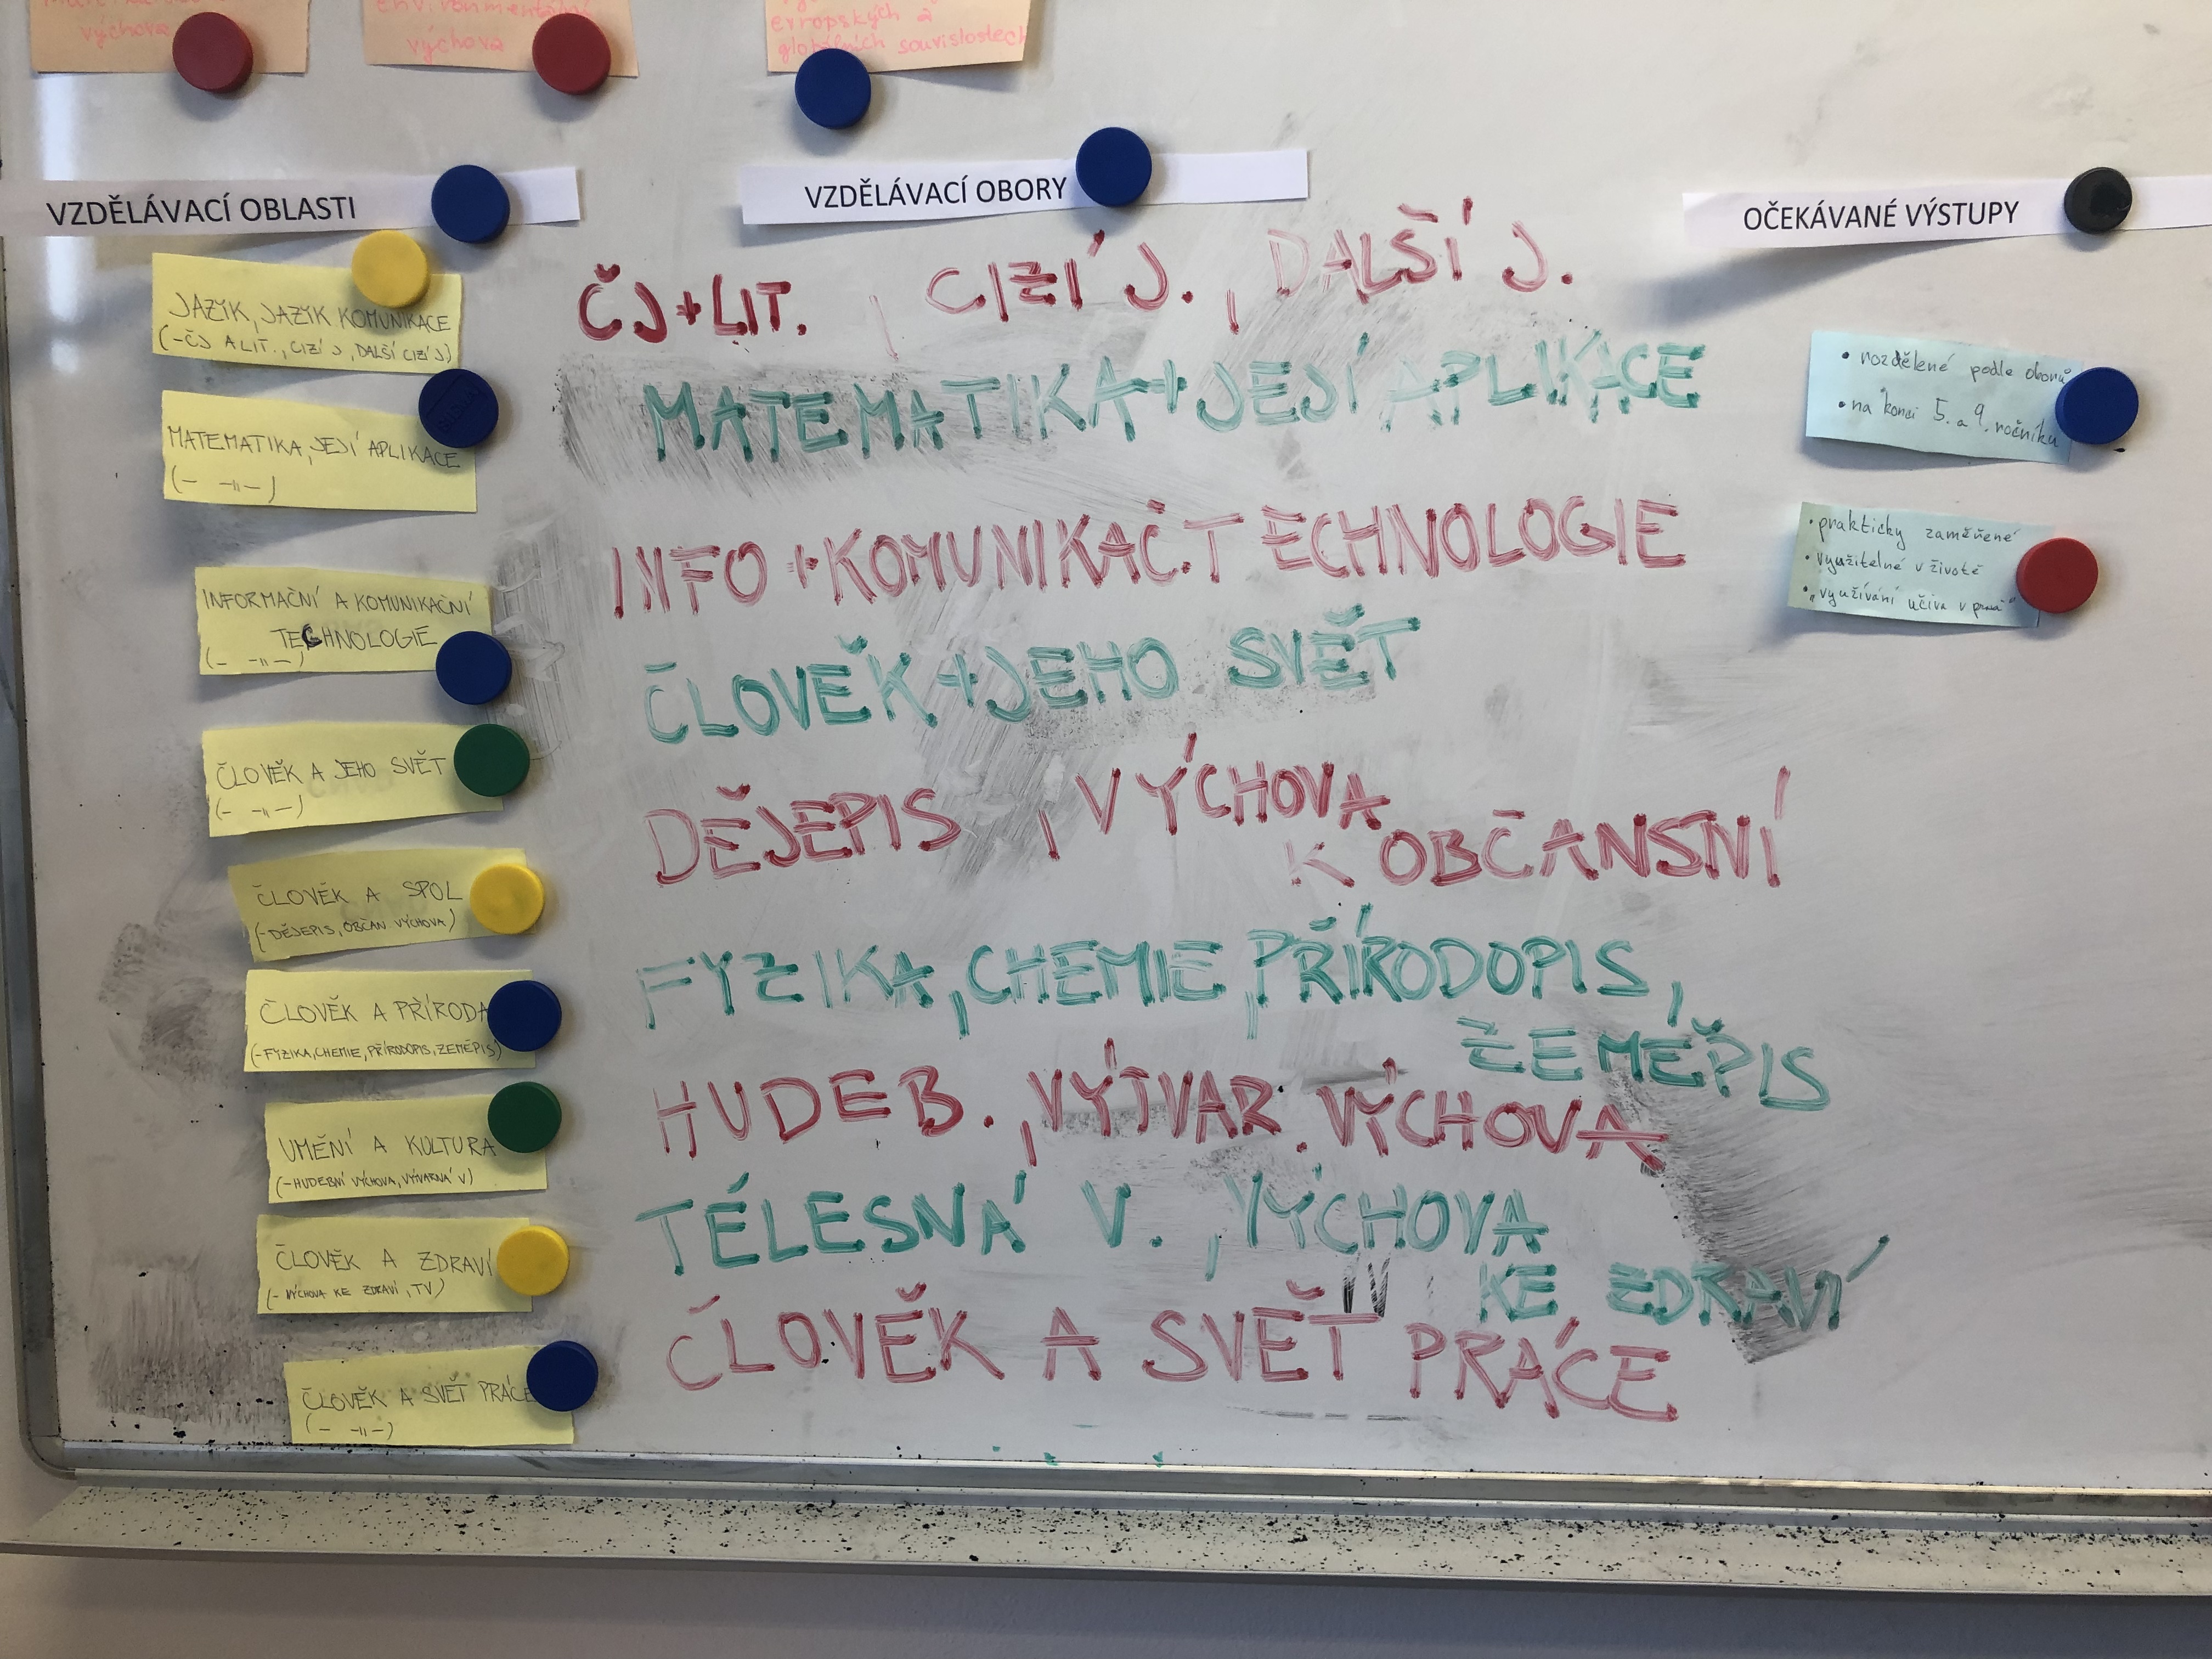 výchova
environmentální
výchova
evropských a
globálních souvislostech
VZDĚLÁVACÍ OBLASTI
VZDĚLÁVACÍ OBORY
OČEKÁVANÉ VÝSTUPY
JAZYK, JAZYK KOMUNIKACE
(-ČJ A LIT., CIZÍ J, DALŠÍ CIZÍ J)
MATEMATIKA, JEJÍ APLIKACE
(- -॥-)
INFORMAČNÍ A KOMUNIKAČNÍ
TECHNOLOGIE
(- -॥-)
ČLOVĚK A JEHO SVĚT
(- -॥-)
ČLOVĚK A SPOL
(-DĚJEPIS, OBČAN VÝCHOVA)
ČLOVĚK A PŘÍRODA
(-FYZIKA, CHEMIE, PŘÍRODOPIS, ZEMĚPIS)
UMĚNÍ A KULTURA
(-HUDEBNÍ VÝCHOVA, VÝTVARNÁ V)
ČLOVĚK A ZDRAVÍ
(- VÝCHOVA KE ZDRAVÍ, TV)
ČLOVĚK A SVĚT PRÁCE
(- -॥-)
ČJ+LIT. , CIZÍ J. , DALŠÍ J.
MATEMATIKA + JEJÍ APLIKACE
INFO + KOMUNIKAČ. TECHNOLOGIE
ČLOVĚK + JEHO SVĚT
DĚJEPIS , VÝCHOVA
K OBČANSNÍ
FYZIKA, CHEMIE, PŘÍRODOPIS,
ZEMĚPIS
HUDEB. , VÝTVAR. VÝCHOVA
TĚLESNÁ V. , VÝCHOVA
KE ZDRAVÍ
ČLOVĚK A SVĚT PRÁCE
• rozdělené podle oborů
• na konci 5. a 9. ročníku
• prakticky zaměřené
• využitelné v životě
• „využívání učiva v praxi"